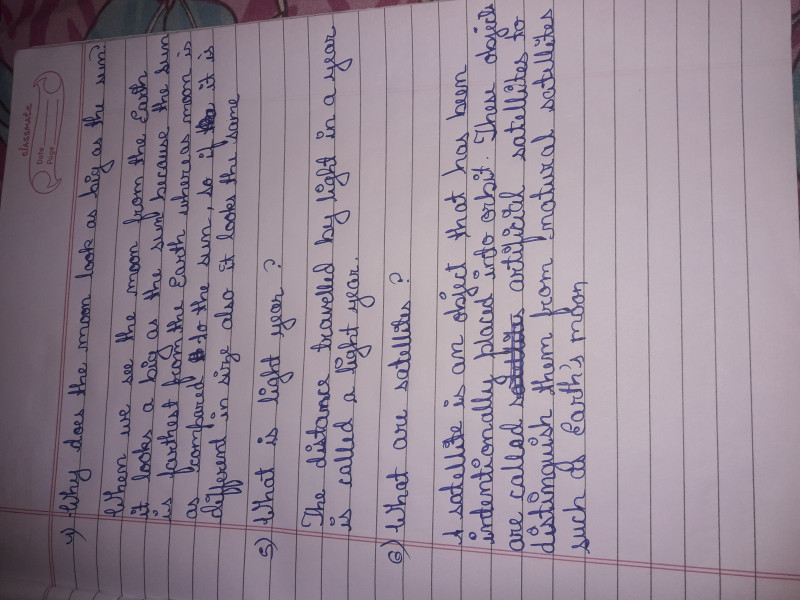 classmate
Date
Page
4) Why does the moon look as big as the sun?
When we see the moon from the Earth
it looks a big as the sun because the sun
is farthest from the Earth whereas moon is
as compared to the sun, so if it is
different in size also it looks the same
5) What is light year?
The distance travelled by light in a year
is called a light year.
6) What are satellites?
A satellite is an object that has been
intentionally placed into orbit. These objects
are called artificial satellites to
distinguish them from natural satellites
such as Earth's moon